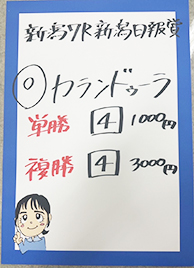 新潟7R新潟日報賞
◎カランドゥーラ
単勝 4 1000円
複勝 4 3000円